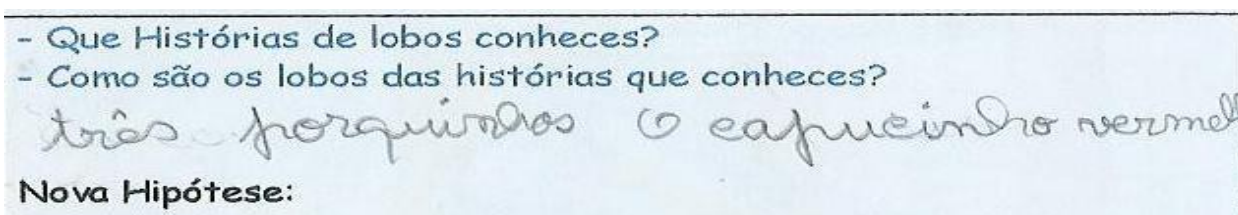 - Que Histórias de lobos conheces?
- Como são os lobos das histórias que conheces?
três porquinhos O capucinho vermel
Nova Hipótese: